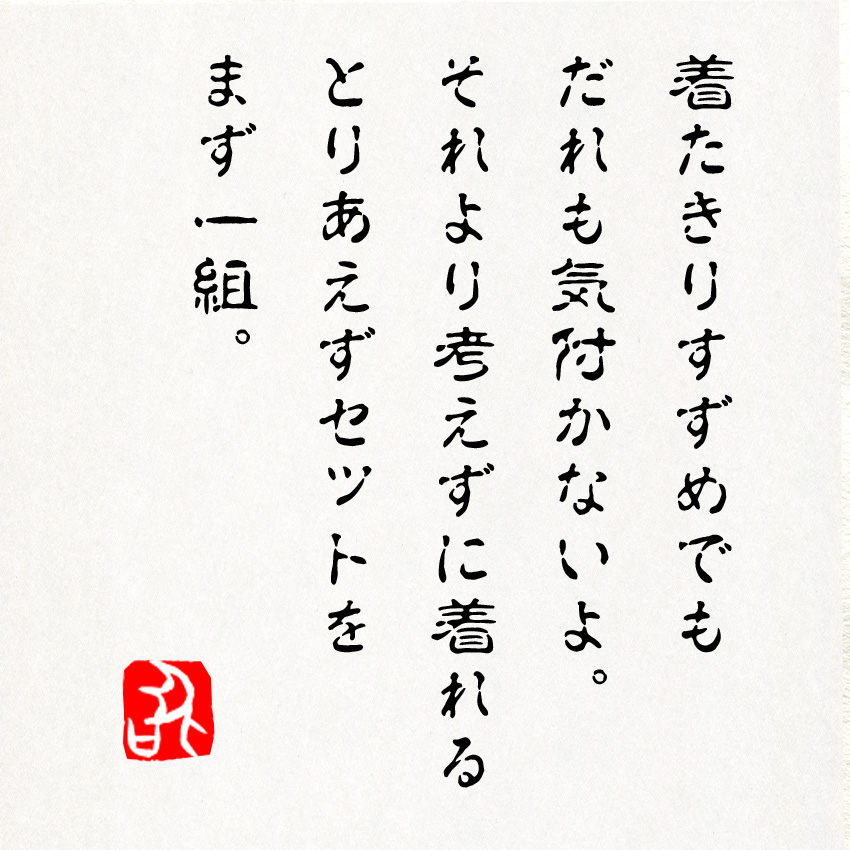 着たきりすずめでも
だれも気付かないよ。
それより考えずに着れる
とりあえずセットを
まず一組。